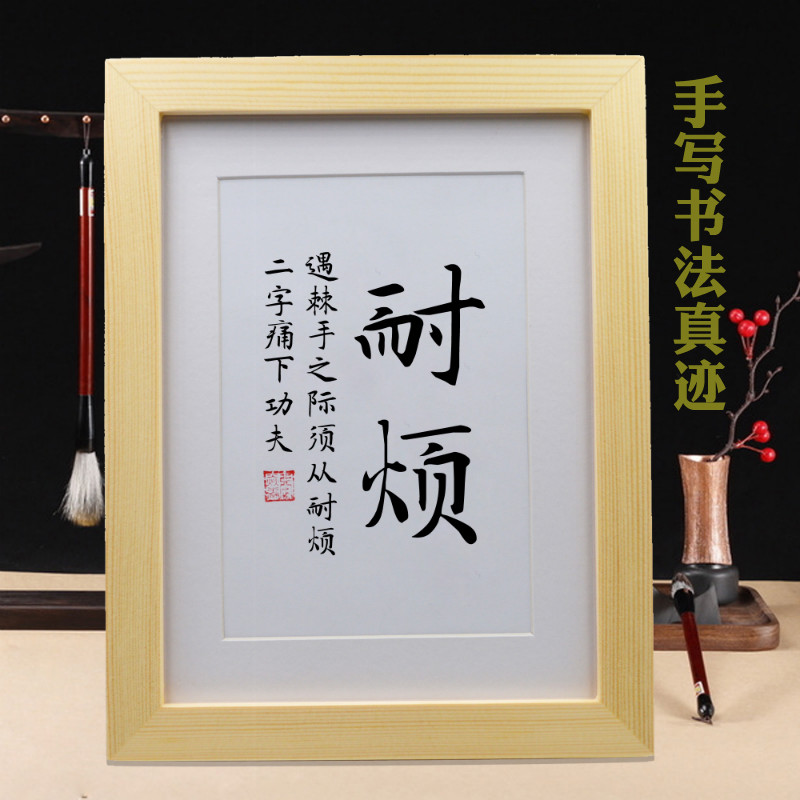 耐烦
遇棘手之际须从耐烦
二字痛下功夫
手写书法真迹